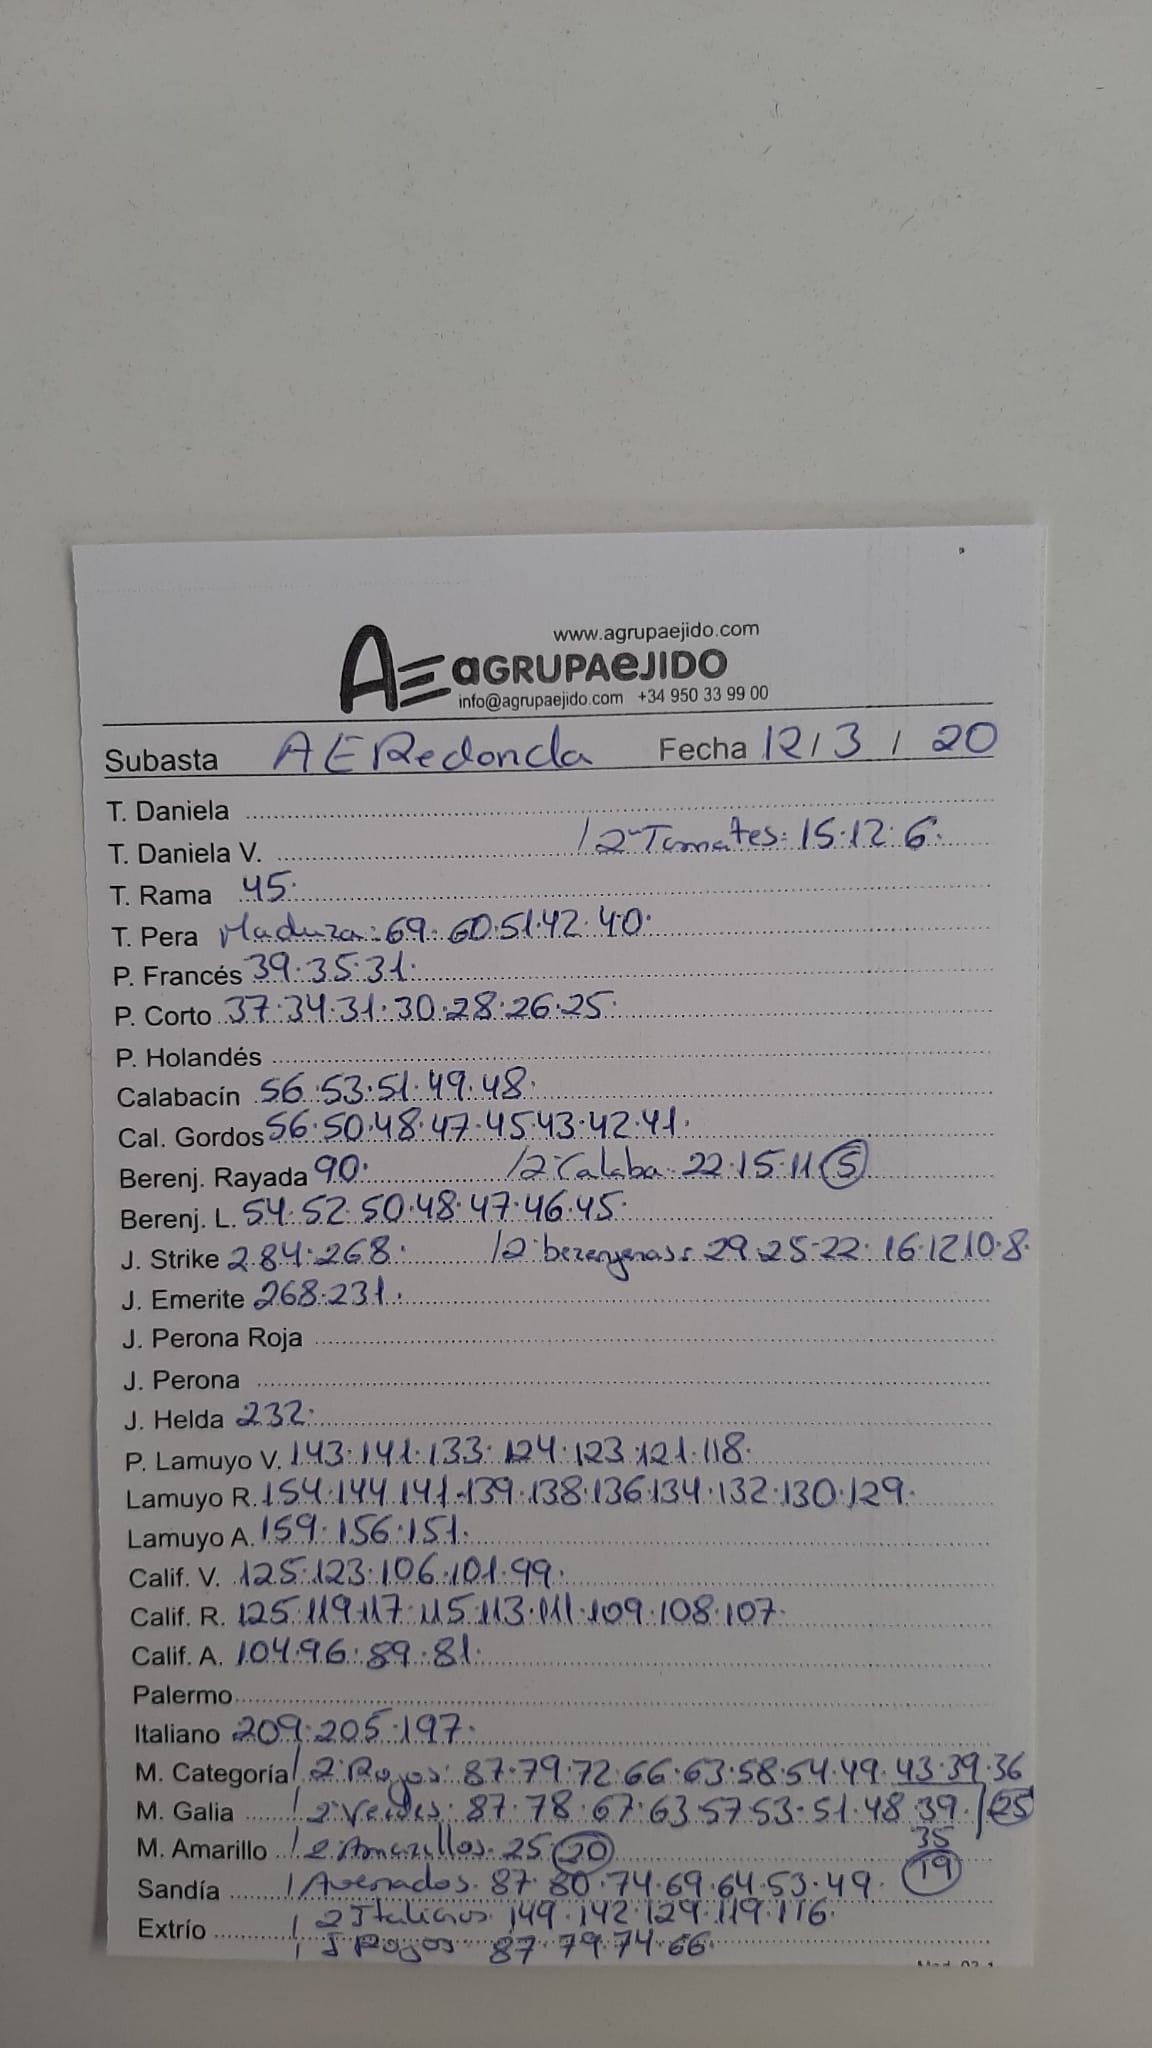 www.agrupaejido.com
AE aGRUPAeJIDO
info@agrupaejido.com +34 950 33 99 00
Subasta AE Redonda Fecha 12/3/20
T. Daniela
T. Daniela V. / 2ª Tomates: 15·12·6·
T. Rama 45·
T. Pera Maduza: 69·60·51·42·40·
P. Francés 39·35·31·
P. Corto 37·34·31·30·28·26·25·
P. Holandés
Calabacín 56·53·51·49·48·
Cal. Gordos 56·50·48·47·45·43·42·41·
Berenj. Rayada 90· /2ª Calaba: 22·15·11 5
Berenj. L. 54·52·50·48·47·46·45·
J. Strike 284·268· /2ª berenjenas: 29·25·22·16·12·10·8·
J. Emerite 268·231·
J. Perona Roja
J. Perona
J. Helda 232·
P. Lamuyo V. 143·141·133·124·123·121·118·
Lamuyo R. 154·144·141·139·138·136·134·132·130·129·
Lamuyo A. 159·156·151·
Calif. V. 125·123·106·101·99·
Calif. R. 125·119·117·115·113·111·109·108·107·
Calif. A. 104·96·89·81·
Palermo
Italiano 209·205·197·
M. Categoría / 2ª Rojos: 87·79·72·66·63·58·54·49·43·39·36
M. Galia / 2ª Verdes: 87·78·67·63·57·53·51·48·39· / 25
35
M. Amarillo / 2ª Amarillos· 25 20
19
Sandía / Asenados· 87·80·74·69·64·53·49·
/ 2 Italianos· 149·142·129·119·116·
Extrío / J Rojos· 87·79·74·66·